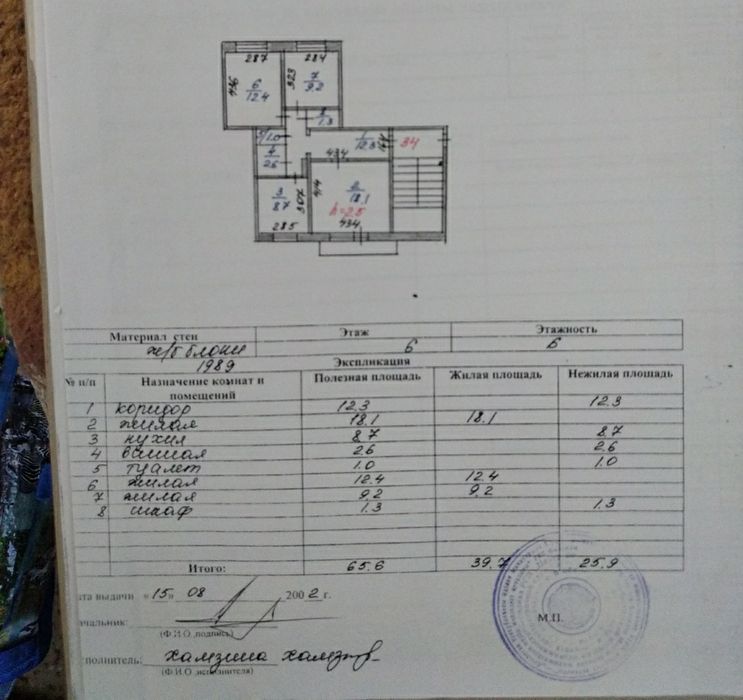 287 284
6 7
12.4 9.2
323
8
1.3
5/1.0
1
12.3
34
4
2.6
434
3
8.7
307
414
2
18.1
h=2.5
285 434
Материал стен Этаж Этажность
ж/б блоки 6 6
1989 Экспликация
№ п/п Назначение комнат и помещений Полезная площадь Жилая площадь Нежилая площадь
1 коридор 12.3 12.3
2 жилая 18.1 18.1
3 кухня 8.7 8.7
4 ванная 2.6 2.6
5 туалет 1.0 1.0
6 жилая 12.4 12.4
7 жилая 9.2 9.2
8 шкаф 1.3 1.3
Итого: 65.6 39.7 25.9
ата выдачи «15» 08 2002 г.
чальник:
(Ф.И.О.,подпись)
М.П.
полнитель: Хамзина
(Ф.И.О.,исполнителя)